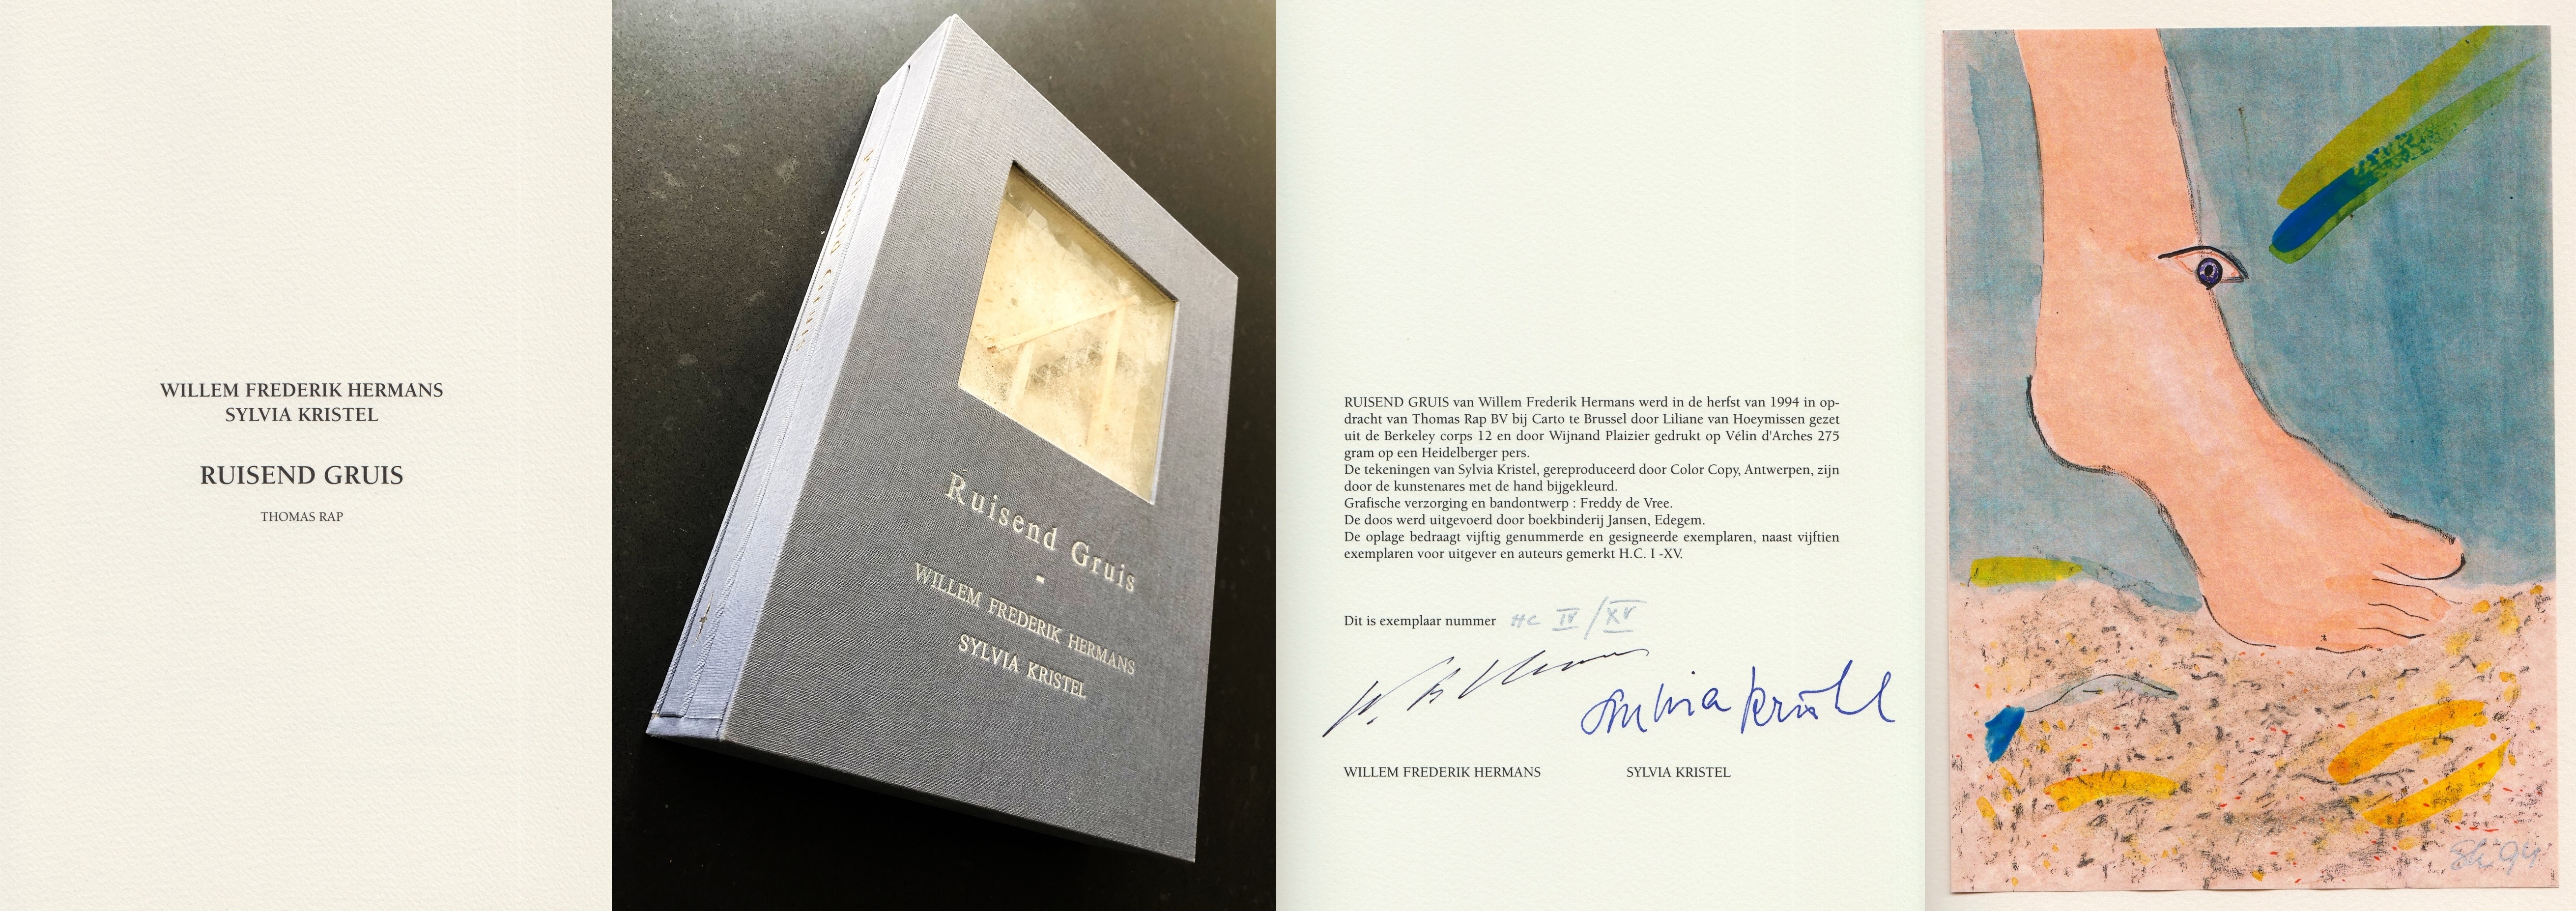 WILLEM FREDERIK HERMANS
SYLVIA KRISTEL
RUISEND GRUIS
THOMAS RAP
Ruisend Gruis
-
WILLEM FREDERIK HERMANS
SYLVIA KRISTEL
RUISEND GRUIS van Willem Frederik Hermans werd in de herfst van 1994 in op-
dracht van Thomas Rap BV bij Carto te Brussel door Liliane van Hoeymissen gezet
uit de Berkeley corps 12 en door Wijnand Plaizier gedrukt op Vélin d'Arches 275
gram op een Heidelberger pers.
De tekeningen van Sylvia Kristel, gereproduceerd door Color Copy, Antwerpen, zijn
door de kunstenares met de hand bijgekleurd.
Grafische verzorging en bandontwerp : Freddy de Vree.
De doos werd uitgevoerd door boekbinderij Jansen, Edegem.
De oplage bedraagt vijftig genummerde en gesigneerde exemplaren, naast vijftien
exemplaren voor uitgever en auteurs gemerkt H.C. I -XV.
Dit is exemplaar nummer HC IV/XV
Sylvia Kristel
WILLEM FREDERIK HERMANS SYLVIA KRISTEL